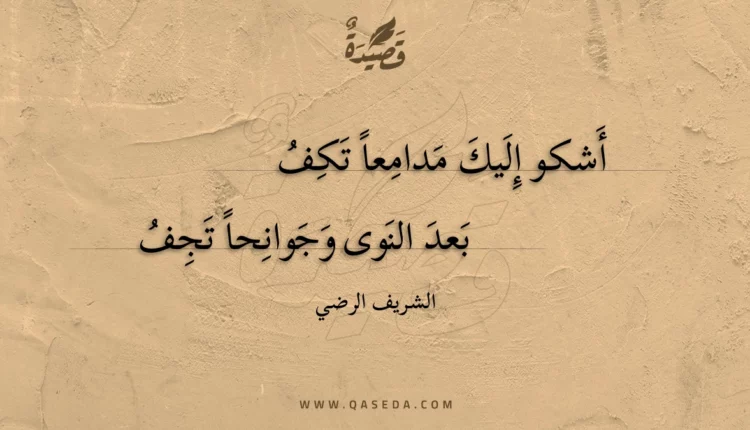 قَصِيدَةٌ
أَشكو إِلَيكَ مَدامِعاً تَكِفُ
بَعدَ النَوى وَجَوانِحاً تَجِفُ
الشريف الرضي
WWW.QASEDA.COM